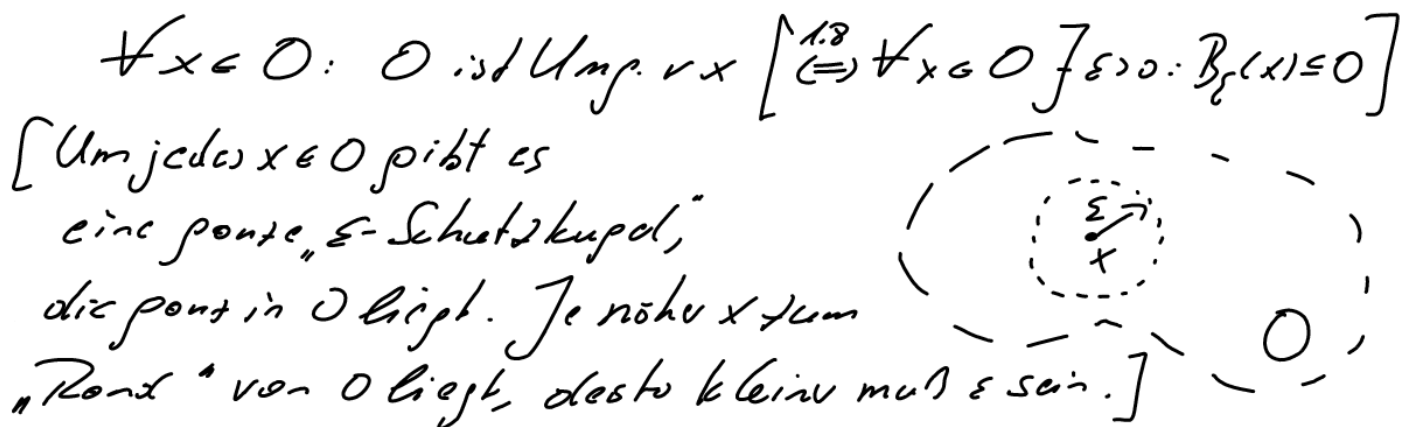 ∀ x ∈ O: O ist Umg. v x [ ⇔^{1.8} ∀ x ∈ O ∃ ε>0: B_ε(x) ⊆ O ]
[Um jedes x ∈ O gibt es
eine ganze „ε-Schutzkugel“,
die ganz in O liegt. Je näher x zum
„Rand“ von O liegt, desto kleiner muß ε sein.]
ε
x
O